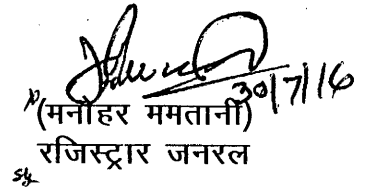 30/7/16
(मनोहर ममतानी)
रजिस्ट्रार जनरल